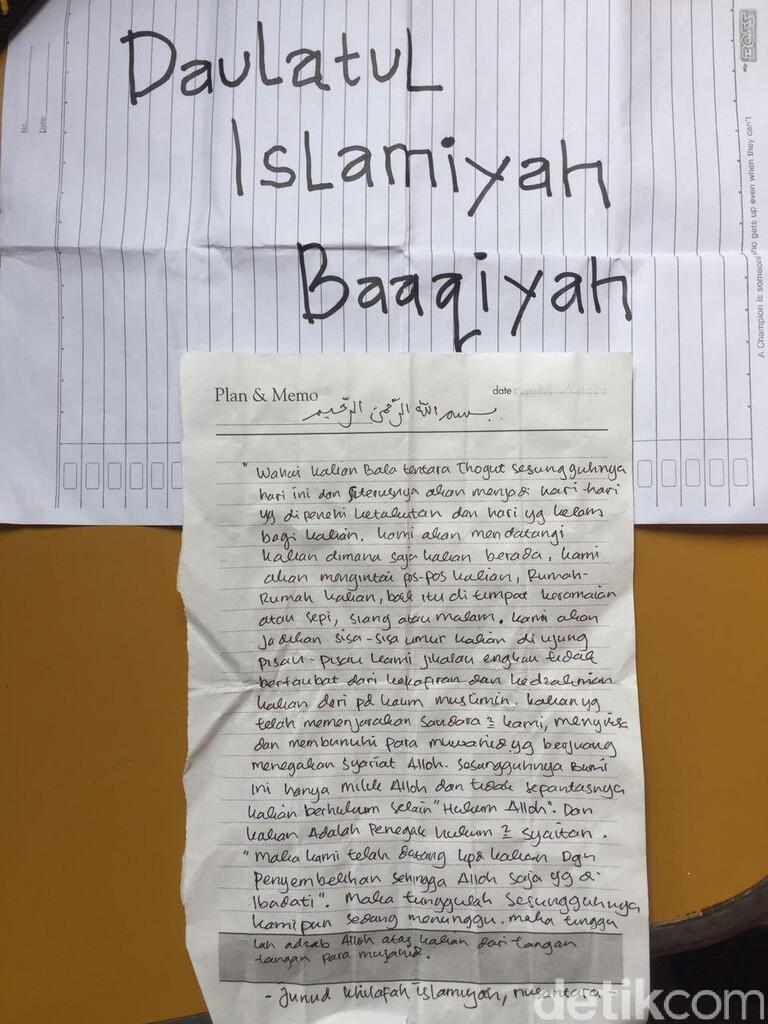 No.
Date:
BOSS
A Champion is someon who gets up even when they can't
Daulatul
Islamiyah
Baaqiyah
Plan & Memo
date :
بسم الله الرّحمن الرّحيم
" Wahai kalian Bala tentara Thogut sesungguhnya
hari ini dan seterusnya akan menjadi hari-hari
yg dipenehi ketakutan dan hari yg kelam
bagi kalian, kami akan mendatangi
kalian dimana saja kalian berada, kami
akan mengintai pos-pos kalian, Rumah-
Rumah kalian, baik itu di tempat keramaian
atau sepi, siang atau malam. kami akan
jadikan sisa-sisa umur kalian di ujung
pisau-pisau kami jikalau engkau tidak
bertaubat dari kekafiran dan kedzaliman
kalian dari pd kaum muslimin. kalian yg
telah memenjarakan saudara 2 kami, menyiksa
dan membunuhi para muwahid yg berjuang
menegakan syariat Alloh. Sesungguhnya Bumi
ini hanya milik Alloh dan tidak sepantasnya
kalian berhukum selain "Hukum Alloh". Dan
kalian Adalah Penegak hukum 2 syaitan.
"Maka kami telah datang kpd kalian Dgn
Penyembelihan sehingga Alloh saja yg di
Ibadati". Maka tunggulah Sesungguhnya
kamipun sedang menunggu. maka tunggu
lah adzab Alloh atas kalian dari tangan
tangan para mujahid.
- Junud khilafah islamiyah, nusantara -
detikcom